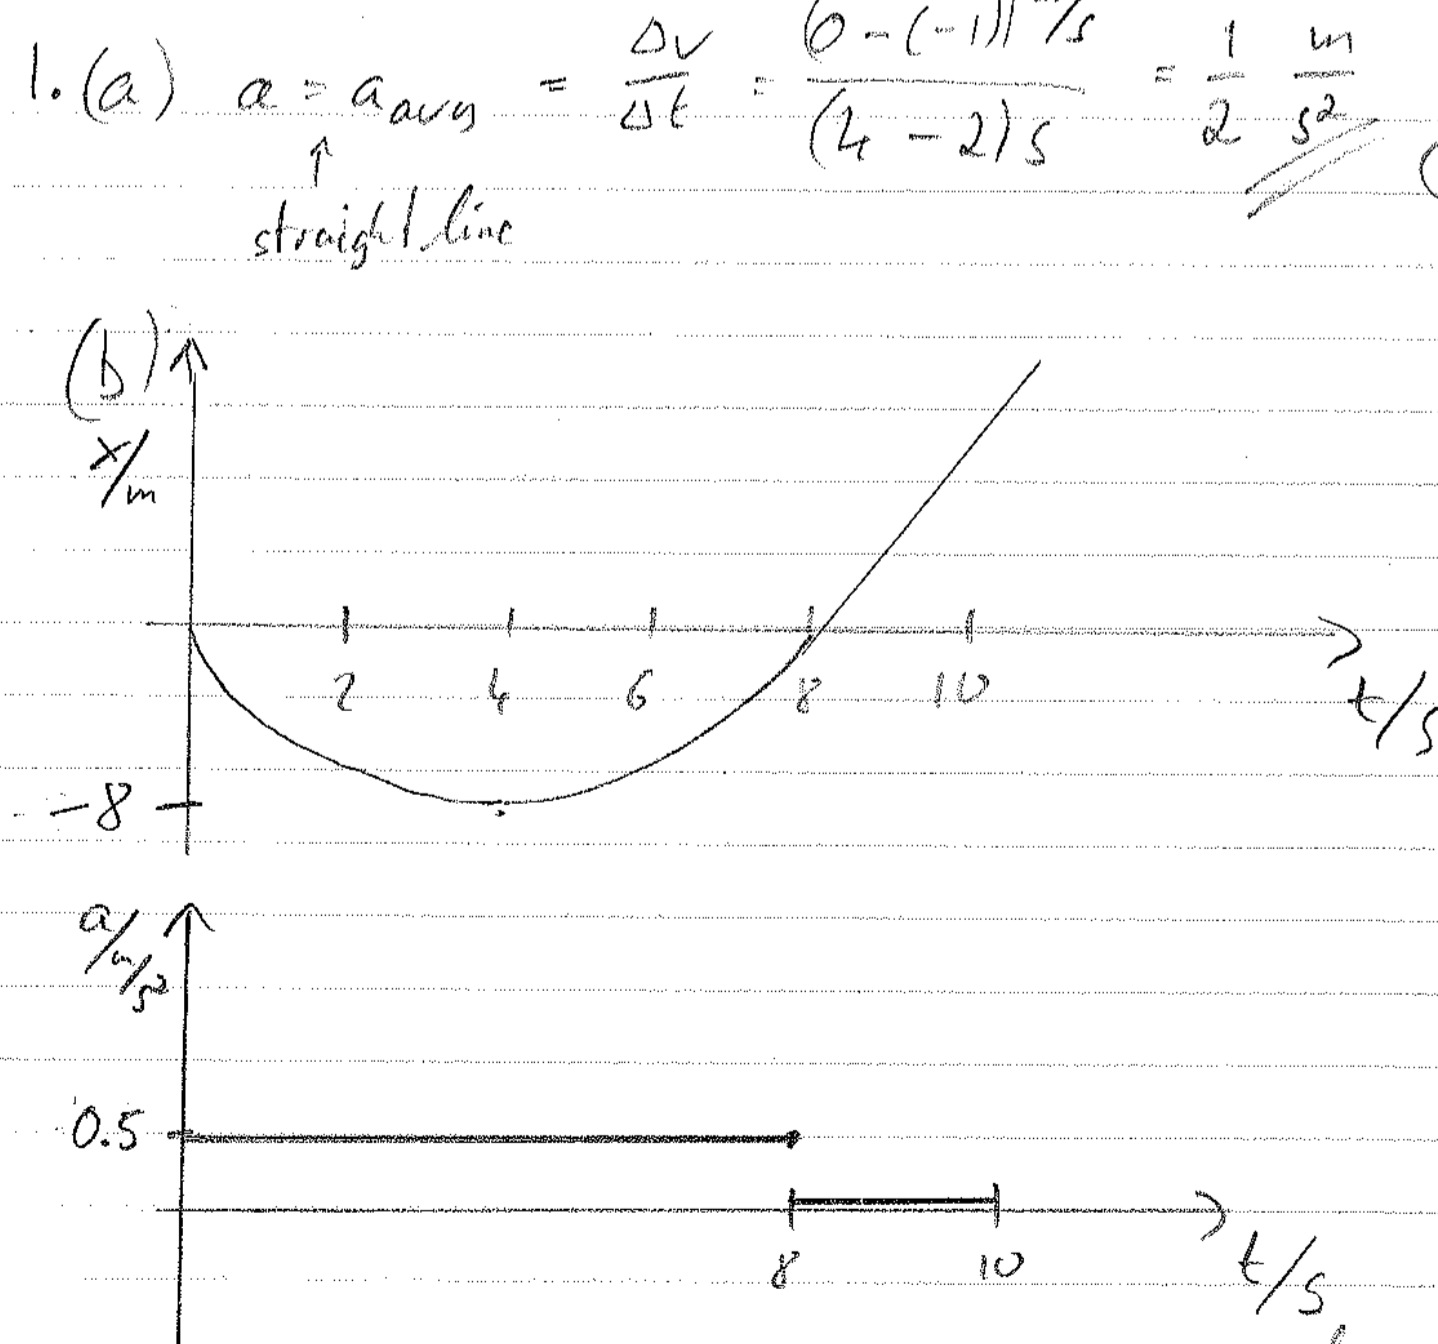 1. (a) a = a avg = Δv/Δt = (0 - (-1)) m/s / (4 - 2) s = 1/2 m/s²
↑
straight line
(b)
x/m
2 4 6 8 10
t/s
-8
a/m/s²
0.5
8 10
t/s